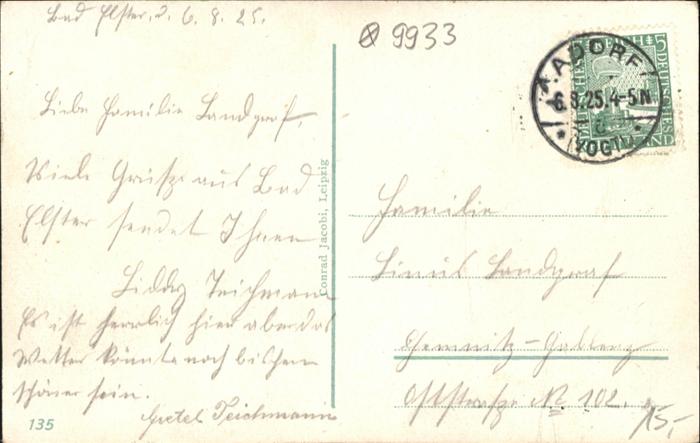 Bad Elster, d. 6.8.25.
Liebe Familie Landgraf,
Viele Grüße aus Bad
Elster sendet Ihnen
Liddy Teichmann
Es ist herrlich hier aber das
Wetter könnte noch bischen
schöner sein.
Gretel Teichmann
135
Conrad Jacobi, Leipzig
9933
ADORF
6.8.25.4-5N
c
(VOGTL.)
5
DEUTSCHES
Familie
Linus Landgraf
Chemnitz-Gablenz
Oststraße № 102.
15,-